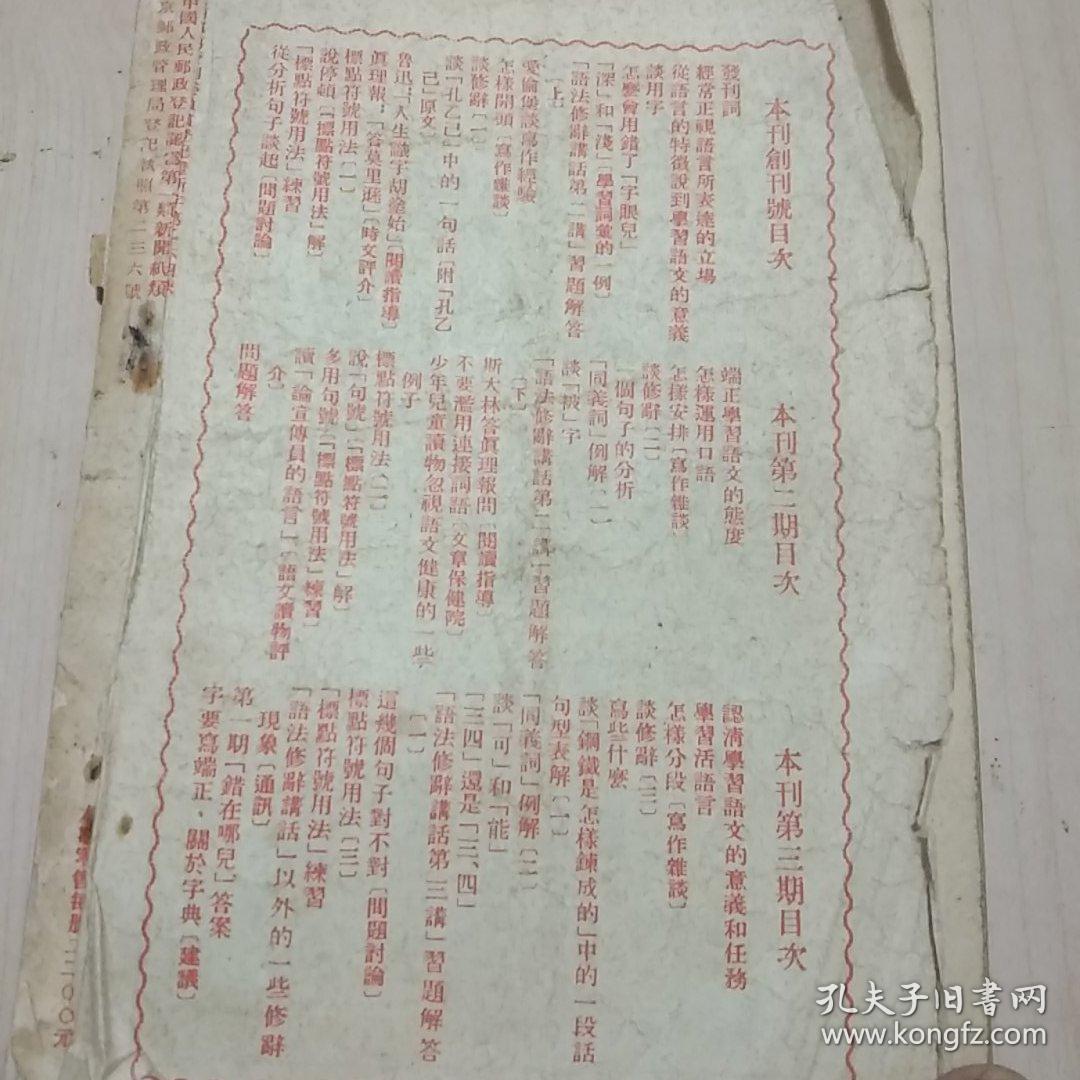 本刊創刊號目次
發刊詞
經常正視語言所表達的立場
從語言的特徵說到學習語文的意義
談用字
怎麽會用錯了「字眼兒」
「深」和「淺」〔學習詞彙的一例〕
「語法修辭講話第一講」習題解答
（上）
愛倫堡談寫作經驗
怎樣開頭〔寫作雜談〕
談修辭（一）
談「孔乙己」中的一句話〔附「孔乙
己」原文〕
魯迅：「人生識字胡塗始」〔閱讀指導〕
眞理報：「答莫里遜」〔時文評介〕
標點符號用法（一）
說停頓〔「標點符號用法」解〕
「標點符號用法」練習
從分析句子談起〔問題討論〕
本刊第二期目次
端正學習語文的態度
怎樣運用口語
怎樣安排〔寫作雜談〕
談修辭（二）
一個句子的分析
「同義詞」例解（一）
談「被」字
「語法修辭講話第二講」習題解答
（下）
斯大林答眞理報問〔閱讀指導〕
不要濫用連接詞語〔文章保健院〕
少年兒童讀物忽視語文健康的一些
例子
標點符號用法（二）
說「句號」〔「標點符號用法」解〕
多用句號〔「標點符號用法」練習〕
讀「論宣傳員的語言」〔語文讀物評
介〕
問題解答
本刊第三期目次
認淸學習語文的意義和任務
學習活語言
怎樣分段〔寫作雜談〕
談修辭（三）
寫些什麽
談「鋼鐵是怎樣鍊成的」中的一段話
句型表解（一）
「同義詞」例解（二）
談「可」和「能」
「三四」還是「三、四」
「語法修辭講話第三講」習題解答
（一）
這幾個句子對不對〔問題討論〕
標點符號用法（三）
「標點符號用法」練習
「語法修辭講話」以外的一些修辭
現象〔通訊〕
第一期「錯在哪兒」答案
字要寫端正、關於字典〔建議〕
中國人民郵政登記認爲第一類新聞紙類
京郵政管理局登記執照第二三六號
孔夫子旧书网
www.kongfz.com